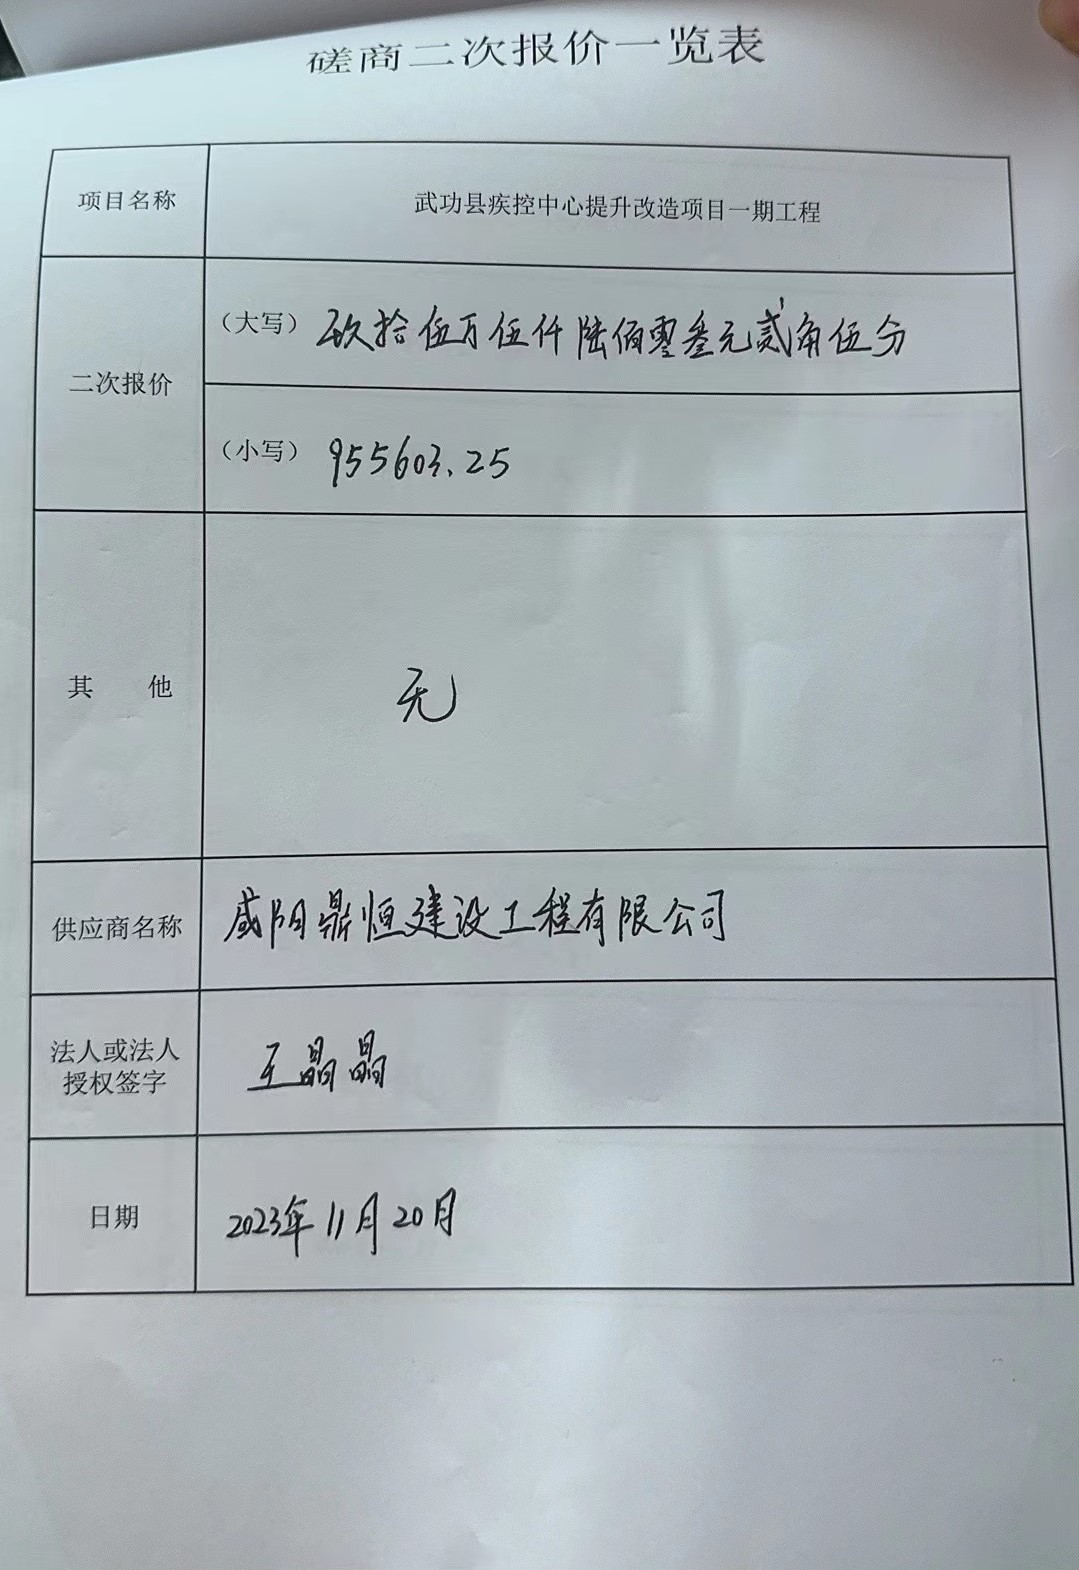 磋商二次报价一览表
项目名称
武功县疾控中心提升改造项目一期工程
二次报价
（大写）玖拾伍万伍仟陆佰零叁元贰角伍分
（小写）955603.25
其 他
无
供应商名称
咸阳鼎恒建设工程有限公司
法人或法人
授权签字
王晶晶
日期
2023年11月20日